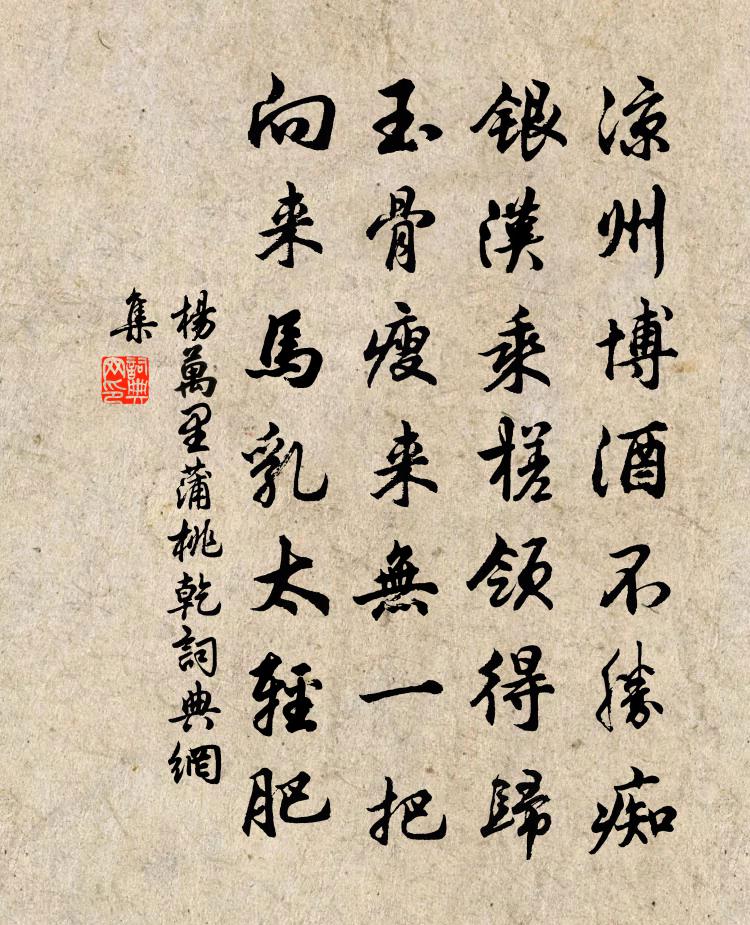 凉州博酒不勝痴
銀漢乘槎領得歸
玉骨瘦来無一把
向来馬乳太輕肥
楊萬里蒲桃乾詞典網
集
詞典
网印